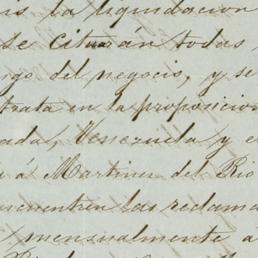 la liquidacion
se citarán todas
del negocio, y se
trata en la proposicion
Venezuela y e
á Martinez del Rio
encuentren las reclama
mensualmente á